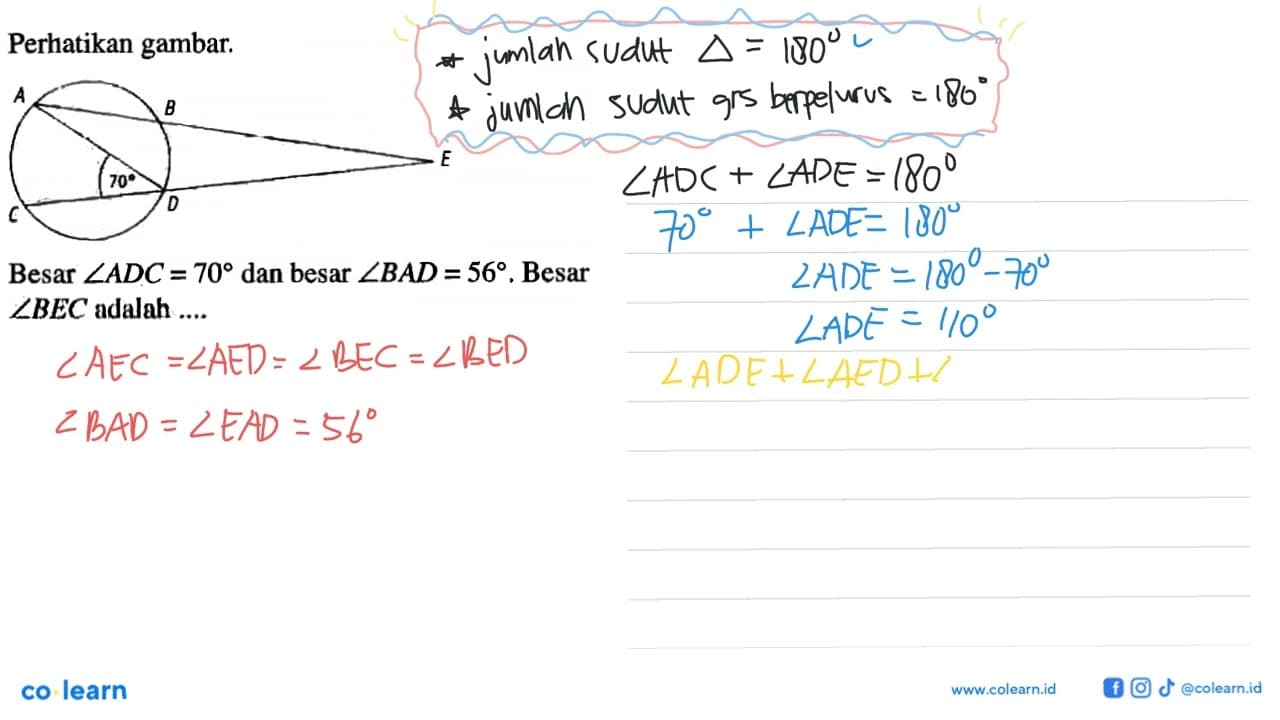 Perhatikan gambar.
A
B
E
70°
C
D
Besar ∠ADC = 70° dan besar ∠BAD = 56°. Besar
∠BEC adalah ....
∠AEC = ∠AED = ∠BEC = ∠BED
∠BAD = ∠EAD = 56°
* jumlah sudut △ = 180°
* jumlah sudut grs berpelurus = 180°
∠ADC + ∠ADE = 180°
70° + ∠ADE = 180°
∠ADE = 180° - 70°
∠ADE = 110°
∠ADE + ∠AED + ∠
co learn
www.colearn.id
@colearn.id